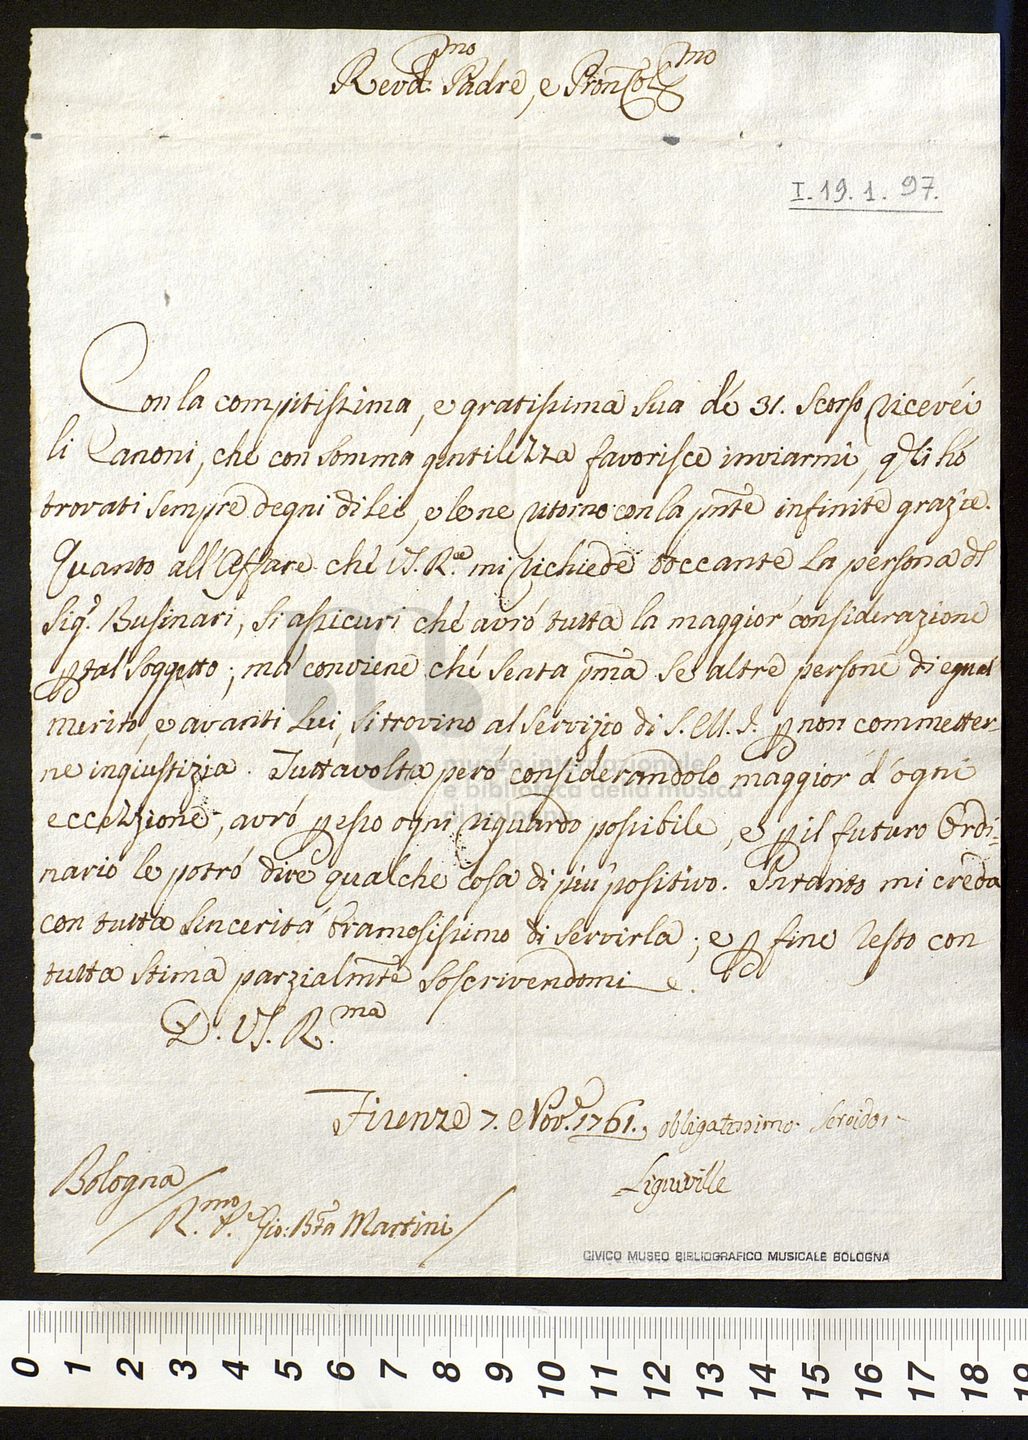 Revd:mo Padre, e Pron Col:mo
I.19.1.97.
Con la compitissima, e gratissima sua de 31. scorso ricevei
li Canoni, che con somma gentilezza favorisce inviarmi, q̃li hò
trovati sempre degni di Lei, e le ne ritorno con la pñte infinite grazie.
Quanto all'Affare che VS. R.ma mi richiede toccante la persona dl
Sig.r Businari, si assicuri ché avró tutta la maggior considerazione
ꝑ tal soggetto; má conviene ché senta pm̃a se altre persone di egual
merito, e avanti Lui, si trovino al servizio di S.M.I. ꝑ non commetter-
ne ingiustizia. Tuttavolta peró considerandolo maggior d'ogni
eccezzione, avró ꝑ esso ogni riguardo possibile, e ꝑ il futuro Ordi-
nario le potró dire qualche cosa di piú positivo. Intanto mi creda
con tutta sinceritá bramosissimo di servirla; e ꝑ fine resto con
tutta stima parzialmte soscrivendomi
D. VS. R.ma
Firenze 7. Nov.e 1761. obbligatissimo Servidor
Ligneville
Bologna
R.mo P.e Gio: Bta Martini
CIVICO MUSEO BIBLIOGRAFICO MUSICALE BOLOGNA
museo internazionale
e biblioteca della musica
di bologna
0 1 2 3 4 5 6 7 8 9 10 11 12 13 14 15 16 17 18 19